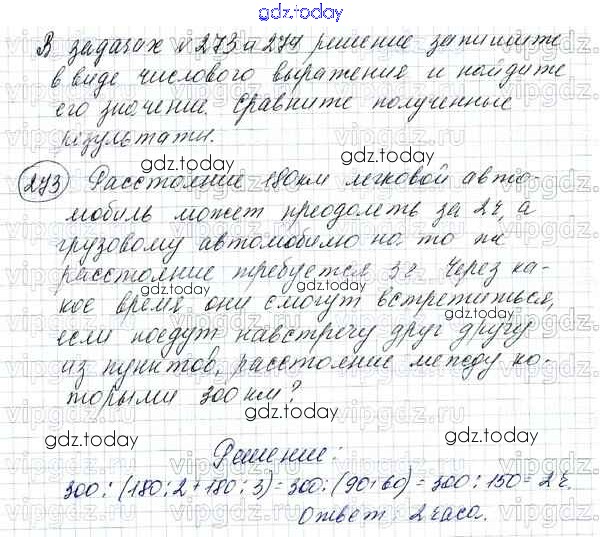 gdz.today
В задачах №273 и 274 решение запишите
в виде числового выражения и найдите
его значение. Сравните полученные
результаты.
gdz.today
273 Расстояние 180км легковой авто-
мобиль может преодолеть за 2ч, а
грузовому автомобилю на то же
расстояние требуется 3ч. Через ка-
кое время они смогут встретиться,
если поедут навстречу друг другу
из пунктов, расстояние между ко-
торыми 300 км?
gdz.today
Решение:
300:(180:2+180:3)=300:(90+60)=300:150=2ч.
Ответ: 2 часа.
gdz.today